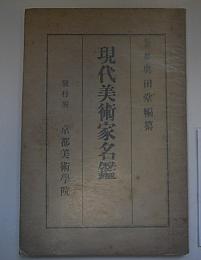 京都奥田堂編纂
現代美術家名鑑
發行所 京都美術學院